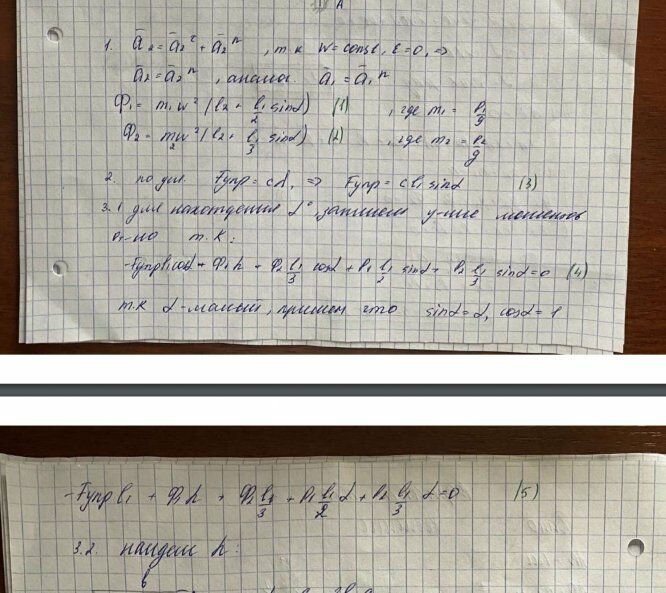 1. ā₂ = ā₂ᵗ + ā₂ⁿ , т.к w = const, ε = 0, =>
ā₂ = ā₂ⁿ , аналог. ā₁ = ā₁ⁿ
Ф₁ = m₁w² (l₂ + l₁/2 sinα) (1) , где m₁ = P₁/g
Ф₂ = m₂w² (l₂ + l₁/3 sinα) (2) , где m₂ = P₂/g
2. Fупр = cλ, => Fупр = cl₁ sinα (3)
3.1 для нахождения α запишем ур-ние моментов
т.К:
-Fупр l₁ cosα + Ф₁h + Ф₂ l₁/3 cosα + P₁ l₁/2 sinα + P₂ l₁/3 sinα = 0 (4)
т.к α - малый, примем что sinα = α, cosα = 1
-Fупр l₁ + Ф₁h + Ф₂ l₁/3 + P₁ l₁/2 α + P₂ l₁/3 α = 0 (5)
3.2. найдем h: